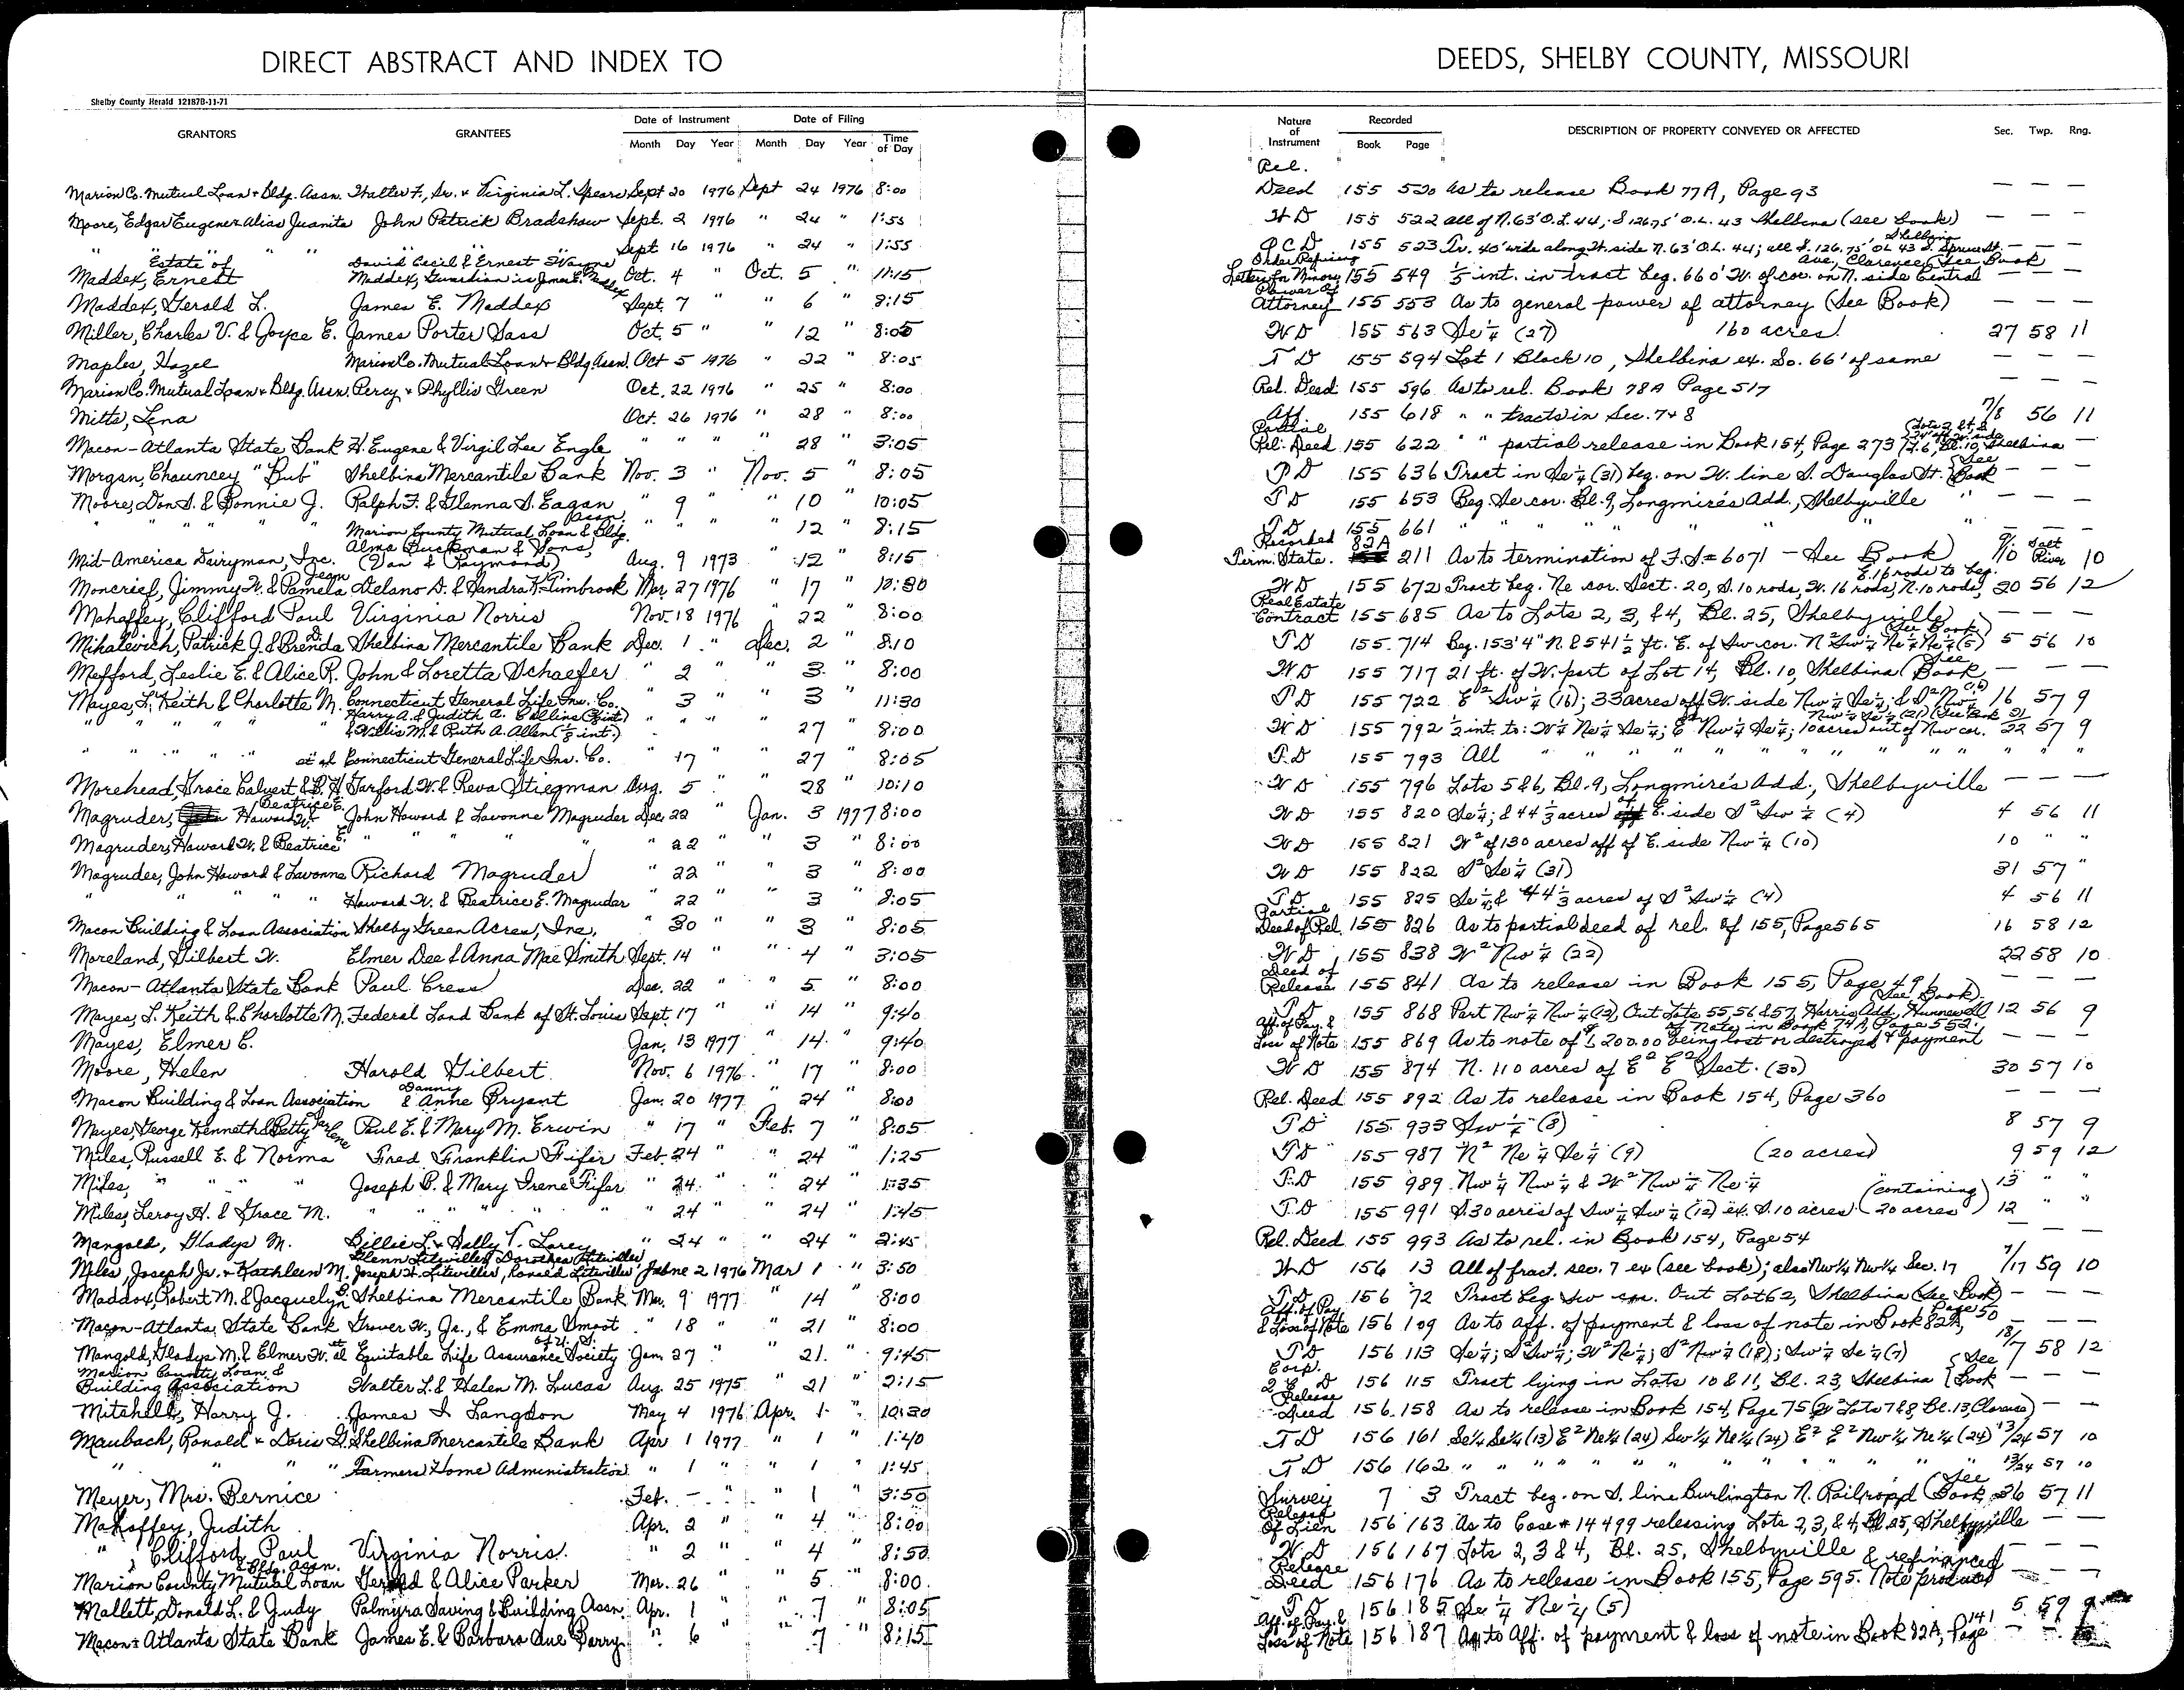 DIRECT ABSTRACT AND INDEX TO
DEEDS, SHELBY COUNTY, MISSOURI
Shelby County Herald 12187B-11-71
GRANTORS GRANTEES Date of Instrument Date of Filing
Month Day Year Month Day Year Time of Day
Nature of Instrument Recorded Book Page DESCRIPTION OF PROPERTY CONVEYED OR AFFECTED Sec. Twp. Rng.
Marion Co. Mutual Loan + Bldg. Assn. Walter F., Sr. + Virginia L. Spears Sept 20 1976 Sept 24 1976 8:00 Rel. Deed 155 520 As to release Book 77A, Page 93 — — —
Moore, Edgar Eugene + Alias Juanita John Patrick Bradshaw Sept. 2 1976 " 24 " 1:55 WD 155 522 all of N. 63' O.L. 44; S 126.75' O.L. 43 Shelbina (see book) — — —
" " " " Sept 16 1976 " 24 " 1:55 QCD 155 523 Tr. 40' wide along W. side N. 63' O.L. 44; all S. 126.75' OL 43 Shelbina — — —
Estate of Maddex, Ernest David Cecil & Ernest Wayne Maddex, Guardian is James E. Maddex Oct. 4 " Oct. 5 " 11:15 Order Refixing Letters for Minors 155 549 1/5 int. in tract beg. 660' W. of cor. on N. side Central Ave., Clarence (See Book — — —
Maddex, Gerald L. James E. Maddex Sept. 7 " " 6 " 8:15 Power of Attorney 155 553 As to general power of attorney (See Book) — — —
Miller, Charles V. & Joyce E. James Porter Sass Oct. 5 " " 12 " 8:05 WD 155 563 Se 1/4 (27) 160 acres 27 58 11
Maples, Hazel Marion Co. Mutual Loan + Bldg. Assn. Oct 5 1976 " 22 " 8:05 TD 155 594 Lot 1 Block 10, Shelbina ex. So. 66' of same — — —
Marion Co. Mutual Loan + Bldg. Assn. Percy + Phyllis Green Oct. 22 1976 " 25 " 8:00 Rel. Deed 155 596 As to rel. Book 78A Page 517 — — —
Mitts, Lena Oct. 26 1976 " 28 " 8:00 Aff. 155 618 " " tracts in Sec. 7 + 8 7/8 56 11
Macon-Atlanta State Bank H. Eugene & Virgil Lee Engle " " " " 28 3:05 Partial Rel. Deed 155 622 " " partial release in Book 154, Page 273 Bl. 10, Shelbina —
Morgan, Chauncey "Bub" Shelbina Mercantile Bank Nov. 3 " Nov. 5 " 8:05 TD 155 636 Tract in Se 1/4 (31) beg. on W. line S. Douglas St. (See Book — — —
Moore, Don S. & Bonnie J. Ralph F. & Glenna S. Eagan " 9 " " 10 " 10:05 TD 155 653 Beg. Se cor. Bl. 9, Longmire's Add., Shelbyville " — — —
" " " " " Marion County Mutual Loan & Bldg. Assn. " " " " 12 " 8:15 TD 155 661 " " " " " " — — —
Mid-America Dairyman, Inc. Alma Buckman & Sons, (Dan & Raymond) Aug. 9 1973 " 12 " 8:15 Recorded Term. State. 82A 211 As to termination of F.S. #6071 - See Book) 9/10 Salt River 10
Moncrief, Jimmy W. & Pamela Jean Delano D. & Handra K. Timbrook Mar. 27 1976 " 17 " 10:30 WD 155 672 Tract beg. Ne cor. Sect. 20, S. 10 rods, W. 16 rods, N. 10 rods, E. 16 rods to beg. 20 56 12
Mahaffey, Clifford Paul Virginia Norris Nov. 18 1976 " 22 " 8:00 Real Estate Contract 155 685 As to Lots 2, 3, & 4, Bl. 25, Shelbyville — — —
Mihalevich, Patrick J. & Brenda D. Shelbina Mercantile Bank Dec. 1 " Dec. 2 " 8:10 TD 155 714 Beg. 153'4" N. & 541 1/2 ft. E. of Sw cor. N 2 Sw 1/4 Ne 1/4 Ne 1/4 (5) (See Book) 5 56 10
Mefford, Leslie E. & Alice R. John & Loretta Schaefer " 2 " " 3 " 8:00 WD 155 717 21 ft. of W. part of Lot 14, Bl. 10, Shelbina (See Book — — —
Mayes, L. Keith & Charlotte M. Connecticut General Life Ins. Co. " 3 " " 3 " 11:30 TD 155 722 E 2 Sw 1/4 (16); 33 acres off W. side Nw 1/4 Se 1/4; & S 2 Nw 1/4 (16) 16 57 9
" " " " " Harry A. & Judith A. Collins & Willis M. & Ruth A. Allen (1/8 int.) " " " " 27 " 8:00 WD 155 792 1/2 int. to: W 1/4 Ne 1/4 Se 1/4; E 2 Nw 1/4 Se 1/4; 10 acres out of Nw cor. Nw 1/4 Se 1/4 (21) (See Book 21/22 57 9
" " " " " et al Connecticut General Life Ins. Co. " 17 " 27 " 8:05 TD 155 793 All " " " " " " " " " "
Morehead, Grace Calvert & B. H. Garford W. & Reva Stiegman Aug. 5 " " 28 " 10:10 WD 155 796 Lots 5 & 6, Bl. 9, Longmire's Add., Shelbyville — — —
Magruder, Howard W. & Beatrice E. John Howard & Lavonne Magruder Dec. 22 " Jan. 3 1977 8:00 WD 155 820 Se 1/4; & 44 1/3 acres of E. side S 2 Sw 1/4 (4) 4 56 11
Magruder, Howard W. & Beatrice E. " " " " " 22 " " 3 " 8:00 WD 155 821 W 2 of 130 acres off of E. side Nw 1/4 (10) 10 " "
Magruder, John Howard & Lavonne Richard Magruder " 22 " " 3 " 8:00 WD 155 822 S 2 Se 1/4 (31) 31 57 "
" " " " Howard W. & Beatrice E. Magruder " 22 " " 3 " 8:05 TD 155 825 Se 1/4 & 44 1/3 acres of S 2 Sw 1/4 (4) 4 56 11
Macon Building & Loan Association Shelby Green Acres, Inc. " 30 " " 3 " 8:05 Partial Deed of Rel. 155 826 As to partial deed of rel. of 155, Page 565 16 58 12
Moreland, Gilbert W. Elmer Dee & Anna Mae Smith Sept. 14 " " 4 " 3:05 WD 155 838 W 2 Nw 1/4 (22) 22 58 10
Macon-Atlanta State Bank Paul Cress Dec. 22 " " 5 " 8:00 Deed of Release 155 841 As to release in Book 155, Page 491 — — —
Mayes, L. Keith & Charlotte M. Federal Land Bank of St. Louis Sept. 17 " " 14 " 9:40 TD 155 868 Part Nw 1/4 Nw 1/4 (12), Out Lots 55, 56 & 57, Harris Add., Hunnewell (See Book) 12 56 9
Mayes, Elmer C. Jan. 13 1977 " 14 " 9:40 Aff. of Pay. & Loss of Note 155 869 As to note of $1,200.00 being lost or destroyed & payment of Note in Book 74A, Page 552. — — —
Moore, Helen Harold Gilbert Nov. 6 1976 " 17 " 8:00 WD 155 874 N. 110 acres of E 2 E 2 Sect. (30) 30 57 10
Macon Building & Loan Association Danny & Anne Bryant Jan. 20 1977 " 24 " 8:00 Rel. Deed 155 892 As to release in Book 154, Page 360 — — —
Mayes, George Kenneth & Betty Darlene Paul E. & Mary M. Erwin " 17 " Feb. 7 " 8:05 TD 155 933 Sw 1/4 (8) 8 57 9
Miles, Russell E. & Norma Fred Franklin Fifer Feb. 24 " " 24 " 1:25 TD 155 987 N 2 Ne 1/4 Se 1/4 (9) (20 acres) 9 59 12
Miles, " " " Joseph B. & Mary Irene Fifer " 24 " " 24 " 1:35 TD 155 989 Nw 1/4 Nw 1/4 & W 2 Nw 1/4 Ne 1/4 13 " "
Miles, Leroy H. & Grace M. " " " " " " 24 " " 24 " 1:45 TD 155 991 S. 30 acres of Sw 1/4 Sw 1/4 (12) ex. S. 10 acres (containing 20 acres) 12 " "
Mangold, Gladys M. Billie L. & Sally T. Lorey " 24 " " 24 " 2:45 Rel. Deed 155 993 As to rel. in Book 154, Page 54 — — —
Miles, Joseph Jr. + Kathleen M. Glenn Litwiller, Dorothea Litwiller, Joseph H. Litwiller, Ronald Litwiller June 2 1976 Mar 1 " 3:50 WD 156 13 All of fract. sec. 7 ex (see book); also Nw 1/4 Nw 1/4 Sec. 17 7/17 59 10
Maddox, Robert M. & Jacquelyn B. Shelbina Mercantile Bank Mar. 9 1977 " 14 " 8:00 TD 156 72 Tract beg. Sw cor. Out Lot 62, Shelbina (See Book) — — —
Macon-Atlanta State Bank Grover W., Jr., & Emma Smoot " 18 " " 21 " 8:00 Aff. of Pay & Loss of Note 156 109 As to aff. of payment & loss of note in Book 82A, Page 50 — — —
Mangold, Gladys M. & Elmer W. et al Equitable Life Assurance Society of U.S. Jan. 27 " " 21 " 9:45 TD 156 113 Se 1/4; S 2 Sw 1/4; W 2 Ne 1/4; S 2 Nw 1/4 (18); Sw 1/4 Se 1/4 (7) 18/7 58 12
Marion County Loan & Building Association Walter L. & Helen M. Lucas Aug. 25 1975 " 21 " 2:15 Corp. Q C D 156 115 Tract lying in Lots 10 & 11, Bl. 23, Shelbina (See Book — — —
Mitchell, Harry J. James I Langdon May 4 1976 Apr. 1 " 10:30 Release Deed 156 158 As to release in Book 154, Page 75 (W 2 Lots 7 & 8, Bl. 13, Clarence) — —
Maubach, Ronald + Doris G. Shelbina Mercantile Bank Apr 1 1977 " 1 " 1:40 TD 156 161 Se 1/4 Se 1/4 (13) E 2 Ne 1/4 (24) Sw 1/4 Ne 1/4 (24) E 2 E 2 Nw 1/4 Ne 1/4 (24) 13/24 57 10
" " " Farmers Home Administration " 1 " " 1 " 1:45 TD 156 162 " " " " " " " " " " 13/24 57 10
Meyer, Mrs. Bernice Feb. — " " 1 " 3:50 Survey 7 3 Tract beg. on S. line Burlington N. Railroad (See Book 36 57 11
Mahaffey, Judith Apr. 2 " " 4 " 8:00 Release Of Lien 156 163 As to Case # 14499 releasing Lots 2, 3, & 4, Bl. 25, Shelbyville — —
" , Clifford Paul Virginia Norris " 2 " " 4 " 8:50 WD 156 167 Lots 2, 3 & 4, Bl. 25, Shelbyville — — —
Marion County Mutual Loan & Bldg. Assn. Gerald & Alice Parker Mar. 26 " " 5 " 8:00 Release Deed 156 176 As to release in Book 155, Page 595. Note produced & refinanced — — —
Mallett, Donald L. & Judy Palmyra Saving & Building Assn. Apr. 1 " " 7 " 8:05 TD 156 185 Se 1/4 Ne 1/4 (5) 5 59 9
Macon-Atlanta State Bank James E. & Barbara Sue Barry " 6 " " 7 " 8:15 Aff. of Pay. & Loss of Note 156 187 As to Aff. of payment & loss of note in Book 82A, Page 141 — —